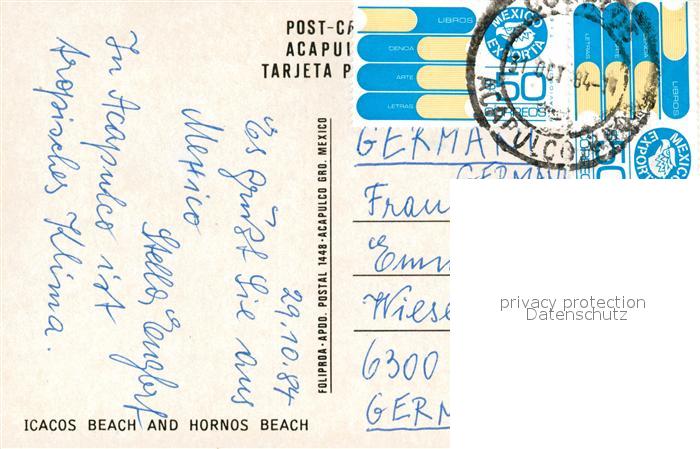 POST-CA
ACAPUL
TARJETA P
29.10.84
Es grüßt Sie aus
Mexico
Stella
In Acapulco ist
tropisches Klima.
FOLIPROA-APDO. POSTAL 1448-ACAPULCO GRO. MEXICO
ICACOS BEACH AND HORNOS BEACH
LIBROS
CIENCIA
ARTE
LETRAS
MEXICO
EXPORTA
50
CORREOS
LETRAS
ARTE
LIBROS
OCT 84
ACAPULCO
MEXICO
EXPORTA
50
CORREOS
GERMA
GERMA
Frau
Emm
Wiese
6300
GERM
privacy protection
Datenschutz